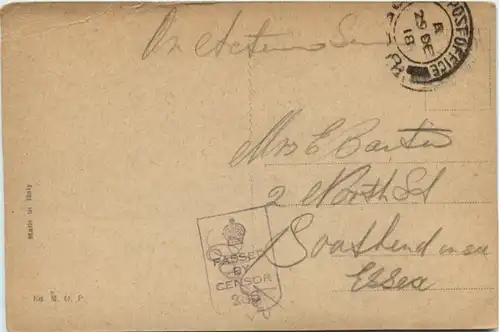 On Active Service
POST OFFICE
A
29 DE
18
Mrs E Baxter
2 North St
Southend on sea
Essex
PASSED
BY
CENSOR
Made in Italy
Ed. M. U. P.